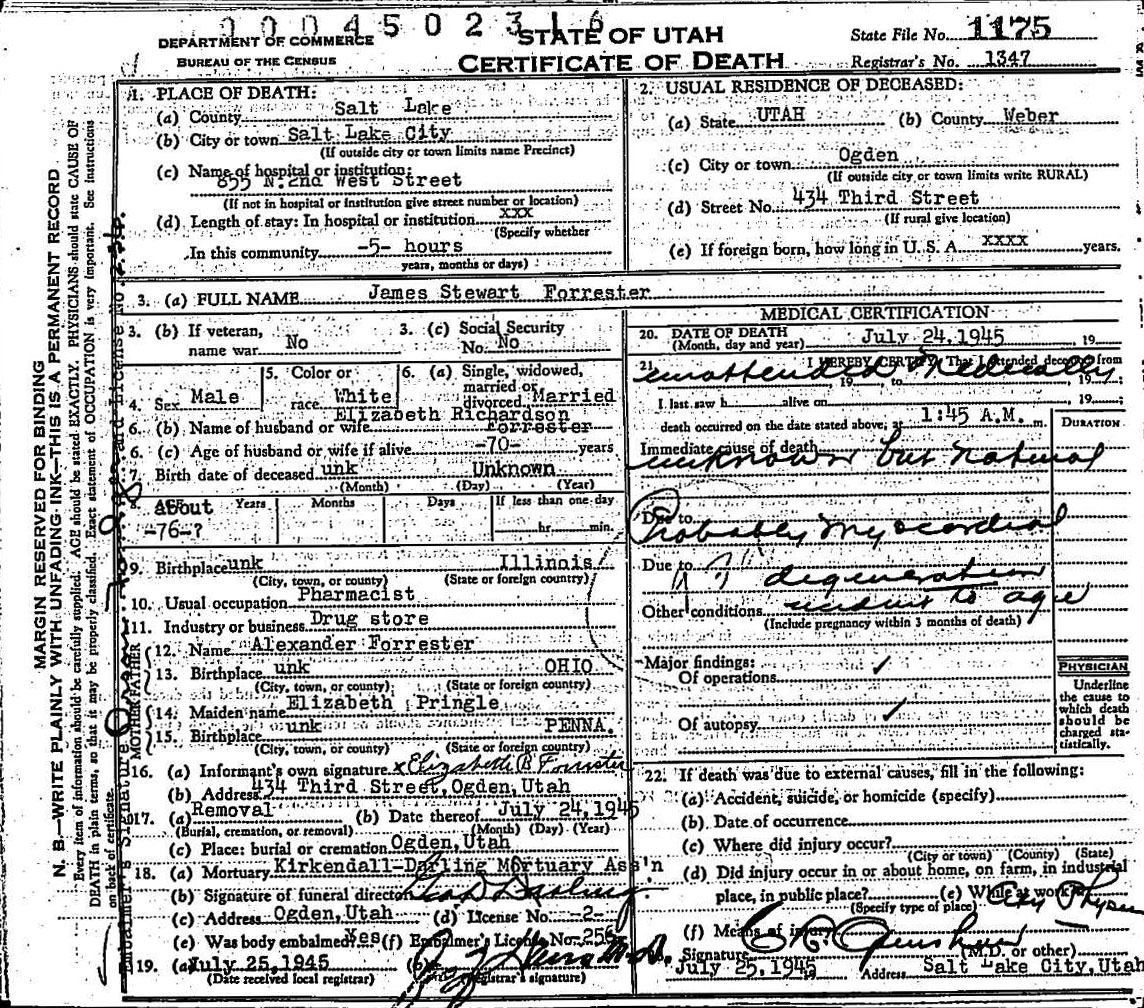 0 0 0 4 5 0 2 3 1 6
DEPARTMENT OF COMMERCE
BUREAU OF THE CENSUS
STATE OF UTAH
CERTIFICATE OF DEATH
State File No. 1175
Registrar's No. 1347
MARGIN RESERVED FOR BINDING
N. B.—WRITE PLAINLY WITH UNFADING INK—THIS IS A PERMANENT RECORD
Every item of information should be carefully supplied. AGE should be stated EXACTLY. PHYSICIANS should state CAUSE OF
DEATH in plain terms, so that it may be properly classified. Exact statement of OCCUPATION is very important. See instructions
on back of certificate.
Embalmer's Signature
1. PLACE OF DEATH:
(a) County Salt Lake
(b) City or town Salt Lake City
(If outside city or town limits name Precinct)
(c) Name of hospital or institution:
855 N. 2nd West Street
(If not in hospital or institution give street number or location)
(d) Length of stay: In hospital or institution xxx
(Specify whether
In this community -5- hours
years, months or days)
2. USUAL RESIDENCE OF DECEASED:
(a) State UTAH (b) County Weber
(c) City or town Ogden
(If outside city or town limits write RURAL)
(d) Street No. 434 Third Street
(If rural give location)
(e) If foreign born, how long in U. S. A. xxxx years.
3. (a) FULL NAME James Stewart Forrester
3. (b) If veteran, name war No 3. (c) Social Security No. No
4. Sex Male 5. Color or race White 6. (a) Single, widowed, married or divorced Married
Elizabeth Richardson
6. (b) Name of husband or wife Forrester
6. (c) Age of husband or wife if alive -70- years
7. Birth date of deceased unk Unknown
(Month) (Day) (Year)
8. AGE Years Months Days If less than one day
About
-76-? hr. min.
9. Birthplace unk Illinois
(City, town, or county) (State or foreign country)
10. Usual occupation Pharmacist
11. Industry or business Drug store
FATHER
12. Name Alexander Forrester
13. Birthplace unk OHIO
(City, town, or county) (State or foreign country)
MOTHER
14. Maiden name Elizabeth Pringle
15. Birthplace unk PENNA.
(City, town, or county) (State or foreign country)
16. (a) Informant's own signature x Elizabeth B Forrester
(b) Address 434 Third Street, Ogden, Utah
17. (a) Removal (b) Date thereof July 24, 1945
(Burial, cremation, or removal) (Month) (Day) (Year)
(c) Place: burial or cremation Ogden, Utah
18. (a) Mortuary Kirkendall-Darling Mortuary Ass'n
(b) Signature of funeral director Darling
(c) Address Ogden, Utah (d) License No. -2-
(e) Was body embalmed? Yes (f) Embalmer's License No. 256
19. (a) July 25, 1945 (b)
(Date received local registrar) (Registrar's signature)
MEDICAL CERTIFICATION
20. DATE OF DEATH July 24, 1945, 19
(Month, day and year)
21. I HEREBY CERTIFY That I attended deceased from
unattended Medically
, 19 , to , 19 ;
I last saw h alive on , 19 ;
death occurred on the date stated above; at 1:45 A.M. m.
DURATION
Immediate cause of death
unknown but natural
Due to
Probably Myocardial
Due to ? degeneration
Other conditions incident to age
(Include pregnancy within 3 months of death)
Major findings:
Of operations ✓
Of autopsy ✓
PHYSICIAN
Underline
the cause to
which death
should be
charged sta-
tistically.
22. If death was due to external causes, fill in the following:
(a) Accident, suicide, or homicide (specify)
(b) Date of occurrence
(c) Where did injury occur?
(City or town) (County) (State)
(d) Did injury occur in or about home, on farm, in industrial
place, in public place? (e) While at work?
(Specify type of place)
City Physn
(f) Means of injury
Signature (M.D. or other)
July 25, 1945 Address Salt Lake City, Utah